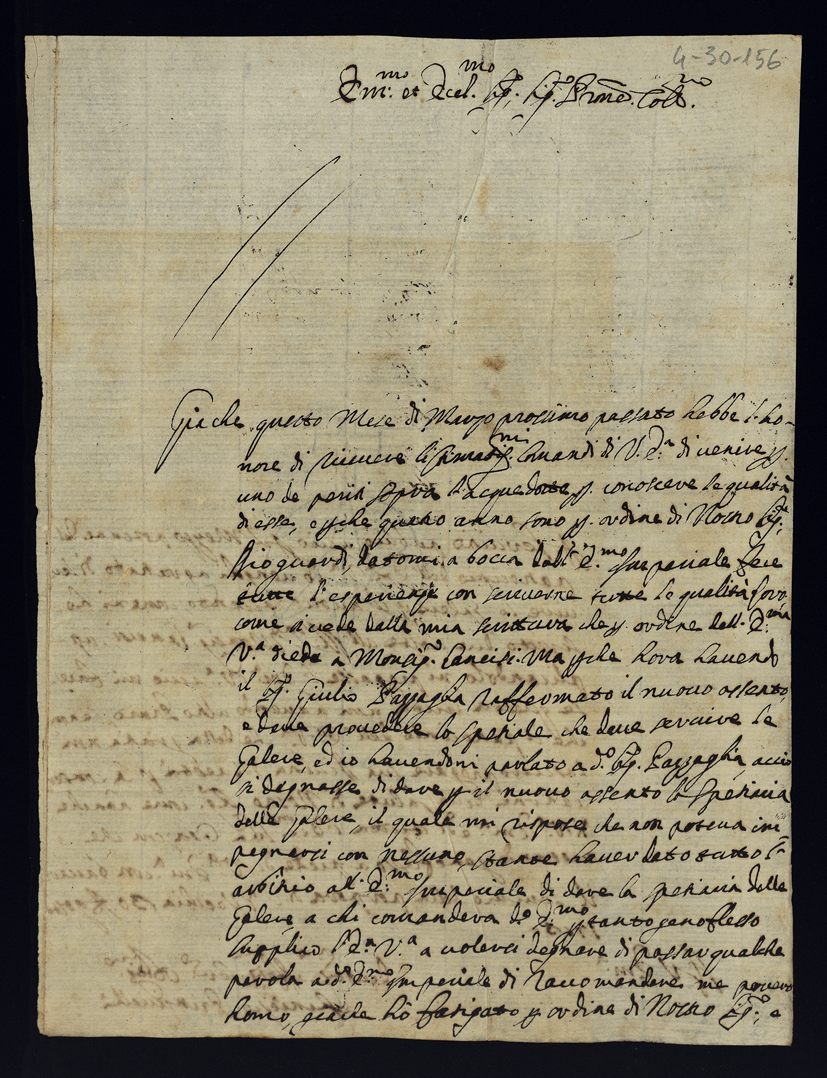 4-30-156
Em.mo et Ecel.mo Sig.r, Sig.r Prone Coll.mo
Gia che questo Mese di Marzo prossimo passato hebbe l'ho-
nore di riceuere li stimatis.mi Comandi di V. E.a di venire p.
uno de periti sopra l'acquedotte p. conoscere le qualità
di esse, e p che quatro anno sono p. ordine di Nostro Sig.re
datomi a bocca dall' E.mo Imperiale fece
tutte l'esperienze con scriuerne tutte le qualità loro
come si vede dalla mia scrittura che p. ordine dell. E.ma
V.a diede a Monsig.r Lancisi. Ma p che hora hauendo
il Sig.r Giulio Pazzaglia raffermato il nuouo assento,
e deue prouedere lo speziale che deue seruire le
Galere, ed io hauendoni parlato a d.o Sig.r Pazzaglia, accio
si degnasse di dare p il nuouo assento la Speziaria
delle Galere, il quale mi rispose che non poteua im
pegnarsi con nessuno, stante hauer dato tutto l'
arbitrio all. E.mo Imperiale di dare la speziaria delle
Galere a chi comandera d.o E.mo, p tanto genoflesso
supplico l'E.a V.a a uolersi degnare di passar qualche
parola a d.o E.mo Imperiale di raccomandare me pouero
homo, gia che hò fatigato p. ordine di Nostro Sig.re, e